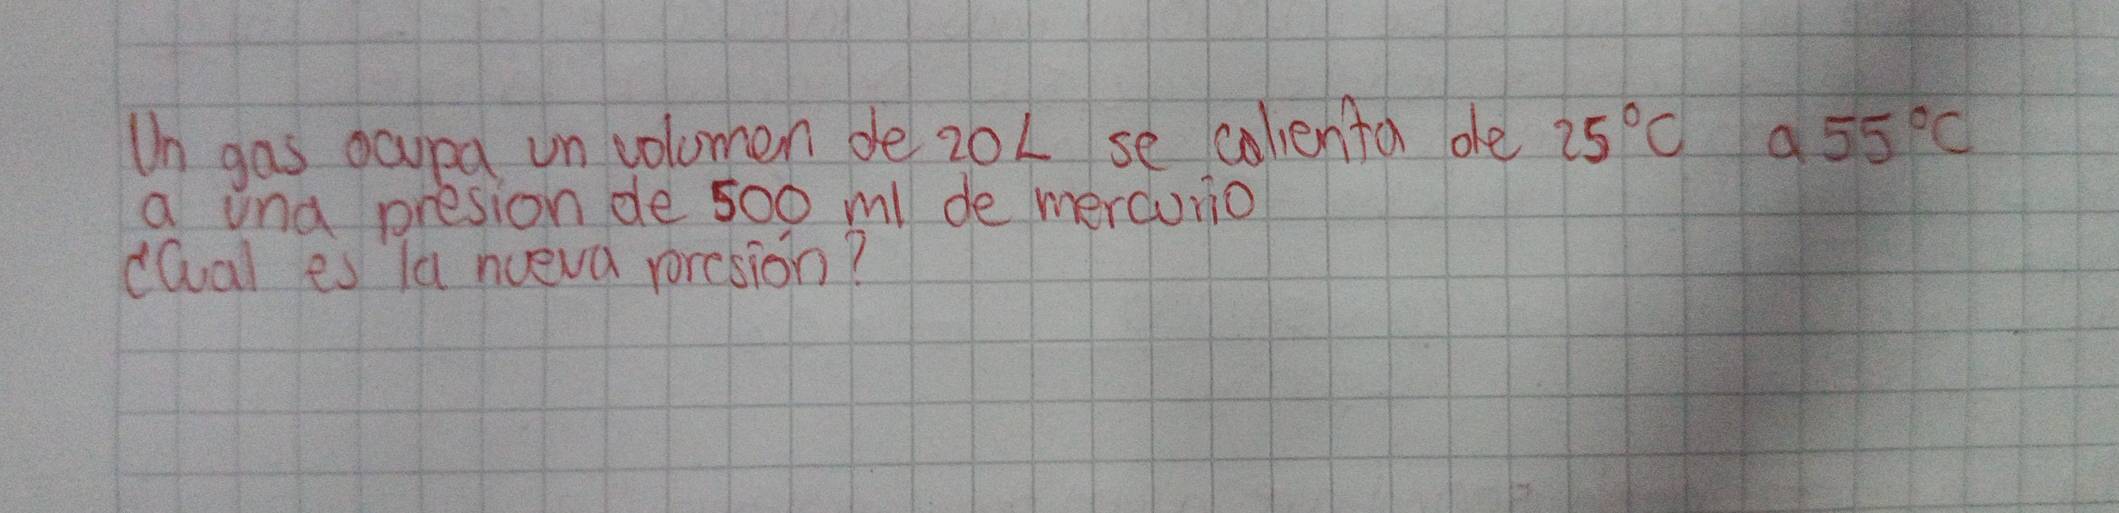 Un gas ocupa un volumen de 20L se calienta de 25°C a 55°C
a una presion de 500 ml de mercurio
¿Cual es la nueva presión?